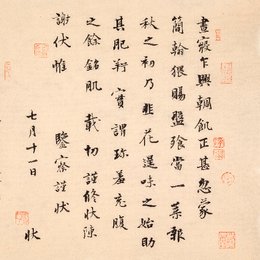 晝寢乍興輖飢正甚忽蒙
簡翰猥賜盤飧當一葉報
秋之初乃韭花逞味之始助
其肥羜實謂珍羞充腹
之餘銘肌載切謹修狀陳
謝伏惟鑒察謹狀
七月十一日
狀